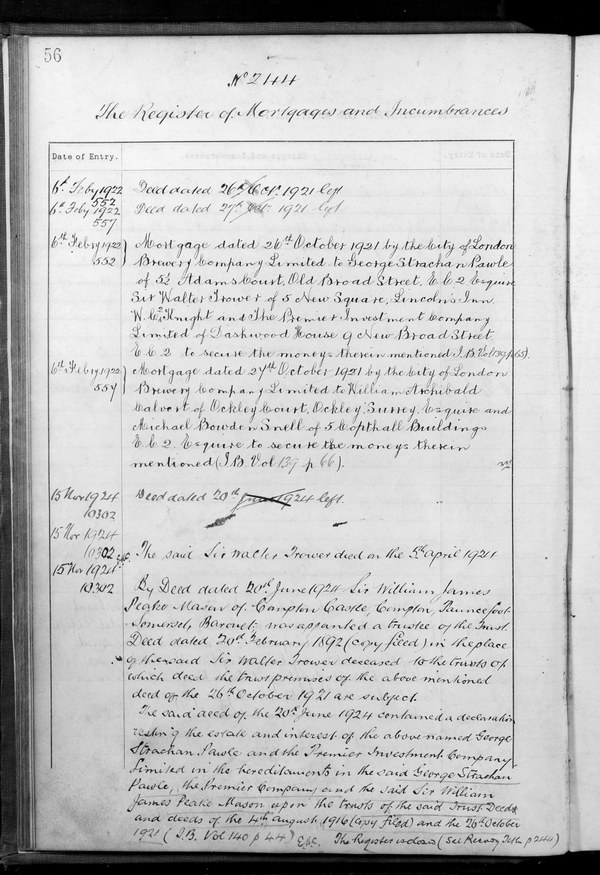 56
No 2144
The Register of Mortgages and Incumbrances
Date of Entry.
6th Feby 1922 Deed dated 26th Octr. 1921 left
552
6th Feby 1922 Deed dated 27th Octr. 1921 left
557
6th Feby 1922 Mortgage dated 26th October 1921 by the City of London
552) Brewery Company Limited to George Strachan Pawle
of 5½ Adams Court, Old Broad Street, E.C.2 Esquire
Sir Walter Trower of 5 New Square, Lincoln's Inn
W.C.2, Knight and The Premier Investment Company
Limited of Dashwood House 9 New Broad Street
E.C.2 to secure the moneys therein mentioned I.B. Vol 139 p 65).
6th Feby 1922 Mortgage dated 27th October 1921 by the City of London
557) Brewery Company Limited to William Archibald
Calvert of Ockley Court, Ockley, Surrey, Esquire and
Michael Bowden Snell of 5 Copthall Buildings
E.C.2 Esquire to secure the moneys therein
mentioned (I.B. Vol 139 p 66).
15 Nov 1924 Deed dated 20th June 1924 left.
10302
15 Nov 1924
10302 The said Sir Walter Trower died on the 5th April 1924
15 Nov 1924
10302 By Deed dated 20th June 1924 Sir William James
Peake Mason of Compton Castle, Compton, Pauncefoot
Somerset, Baronet was appointed a trustee of the Trust
Deed dated 23rd February 1892 (copy filed) in the place
of the said Sir Walter Trower deceased to the trusts of
which deed the trust premises of the above mentioned
deed of the 26th October 1921 are subject.
The said deed of the 20th June 1924 contained a declaration
vesting the estate and interest of the above named George
Strachan Pawle and the Premier Investment Company
Limited in the hereditaments in the said George Strachan
Pawle, the Premier Company and the said Sir William
James Peake Mason upon the trusts of the said Trust Deeds
and deeds of the 4th August 1916 (copy filed) and the 26th October
1921 (I.B. Vol 140 p 44) The Register is closed (see p 244)